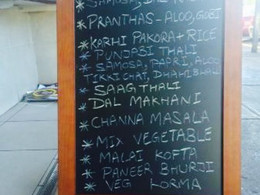 * SAMOSA, DAL MA
* PRANTHAS - ALOO, GOBI
* KARHI PAKORA + RICE
* PUNJABI THALI
* SAMOSA, PAPRI, ALOO
TIKKI CHAT, DHAHI BHALLA
* SAAG THALI
DAL MAKHANI
* CHANNA MASALA
* MIX VEGETABLE
* MALAI KOFTA
* PANEER BHURJI
* VEG KORMA